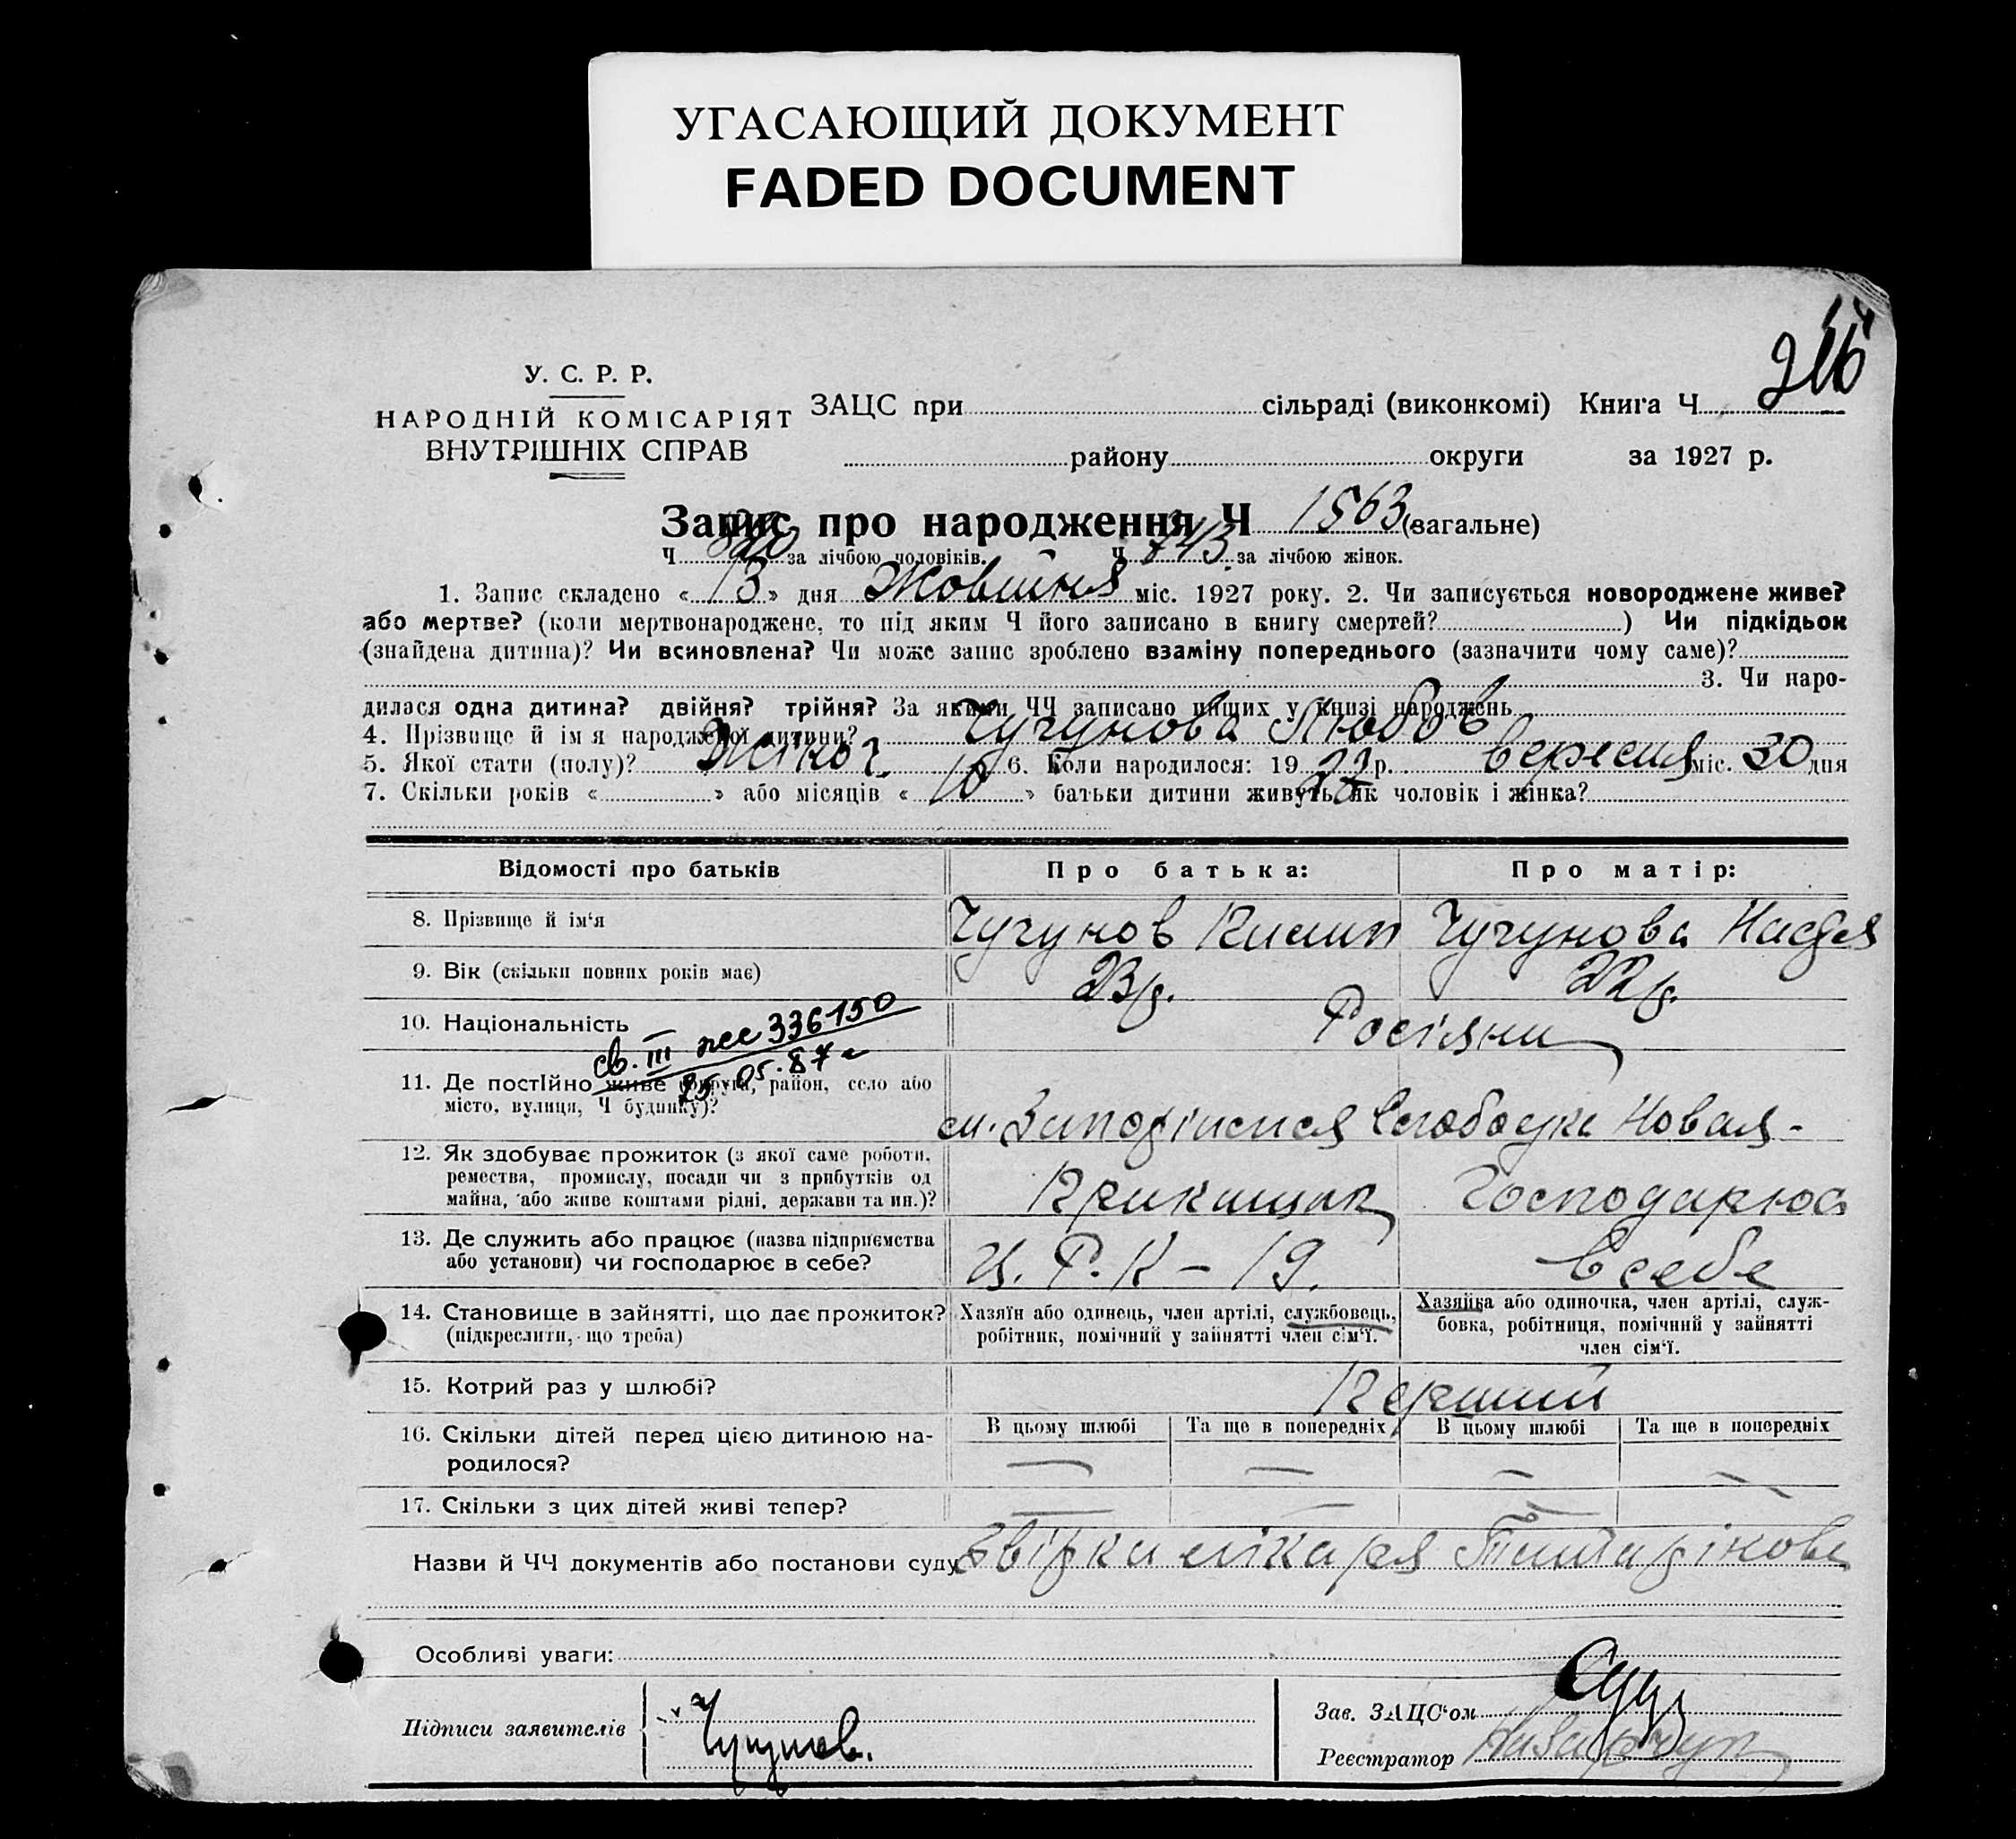 УГАСАЮЩИЙ ДОКУМЕНТ
FADED DOCUMENT
У. С. Р. Р.
НАРОДНІЙ КОМІСАРІЯТ
ВНУТРІШНІХ СПРАВ
ЗАЦС при сільраді (виконкомі) Книга Ч
району округи за 1927 р.
Запис про народження Ч 1563 (загальне)
Ч 820 за лічбою чоловіків. Ч 743 за лічбою жінок.
1. Запис складено «13» дня Жовтня міс. 1927 року. 2. Чи записується новороджене живе?
або мертве? (коли мертвонароджене, то під яким Ч його записано в книгу смертей? ) Чи підкідьок
(знайдена дитина)? Чи всиновлена? Чи може запис зроблено взаміну попереднього (зазначити чому саме)?
3. Чи наро-
дилася одна дитина? двійня? трійня? За якими ЧЧ записано инших у книзі народжень
4. Прізвище й ім я народженої дитини? Чугунова Любов
5. Якої стати (полу)? Жіноч. 6. Коли народилося: 19 р. вересня міс. 30 дня
7. Скільки років « » або місяців «10» батьки дитини живуть як чоловік і жінка?
Відомості про батьків
Про батька:
Про матір:
8. Прізвище й ім'я
Чугунов
Чугунова Надія
9. Вік (скільки повних років має)
23 р.
22 р.
10. Національність
Росіяни
св. III 336150
25.05.87 г
11. Де постійно живе (округа, район, село або
місто, вулиця, Ч будинку)?
Слободка Новая -
12. Як здобуває прожиток (з якої саме роботи,
ремества, промислу, посади чи з прибутків од
майна, або живе коштами рідні, держави та ин.)?
Прикащик
Господарює
13. Де служить або працює (назва підприємства
або установи) чи господарює в себе?
Ц. Р. К - 19.
в себе
14. Становище в зайнятті, що дає прожиток?
(підкреслити, що треба)
Хазяїн або одинець, член артілі, службовець,
робітник, помічний у зайнятті член сім'ї.
Хазяйка або одиночка, член артілі, служ-
бовка, робітниця, помічний у зайнятті
член сім'ї.
15. Котрий раз у шлюбі?
Перший
16. Скільки дітей перед цією дитиною на-
родилося?
В цьому шлюбі
Та ще в попередніх
В цьому шлюбі
Та ще в попередніх
—
—
—
—
17. Скільки з цих дітей живі тепер?
—
—
—
—
Назви й ЧЧ документів або постанови суду
лікаря
Особливі уваги:
Підписи заявителів
Чугунов.
Зав. ЗАЦС'ом
Реєстратор